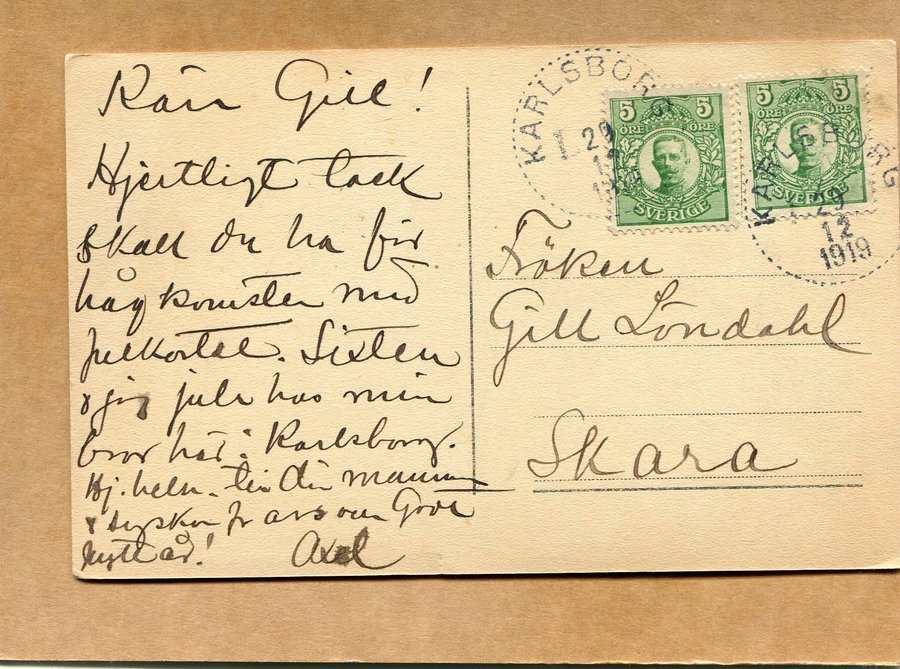 Kära Gill!
Hjertligt tack
skall du ha för
hågkomsten med
julkortet. Sixten
& jag jula hos min
bror här i Karlsborg.
Hj. heln. till din mamma
& syskon fr oss om Godt
nytt år!
Axel
KARLSBORG
1 29
12
5 5
ÖRE ÖRE
SVERIGE
5 5
ÖRE ÖRE
SVERIGE
KARLSBORG
29
12
1919
Fröken
Gill Löndahl
Skara